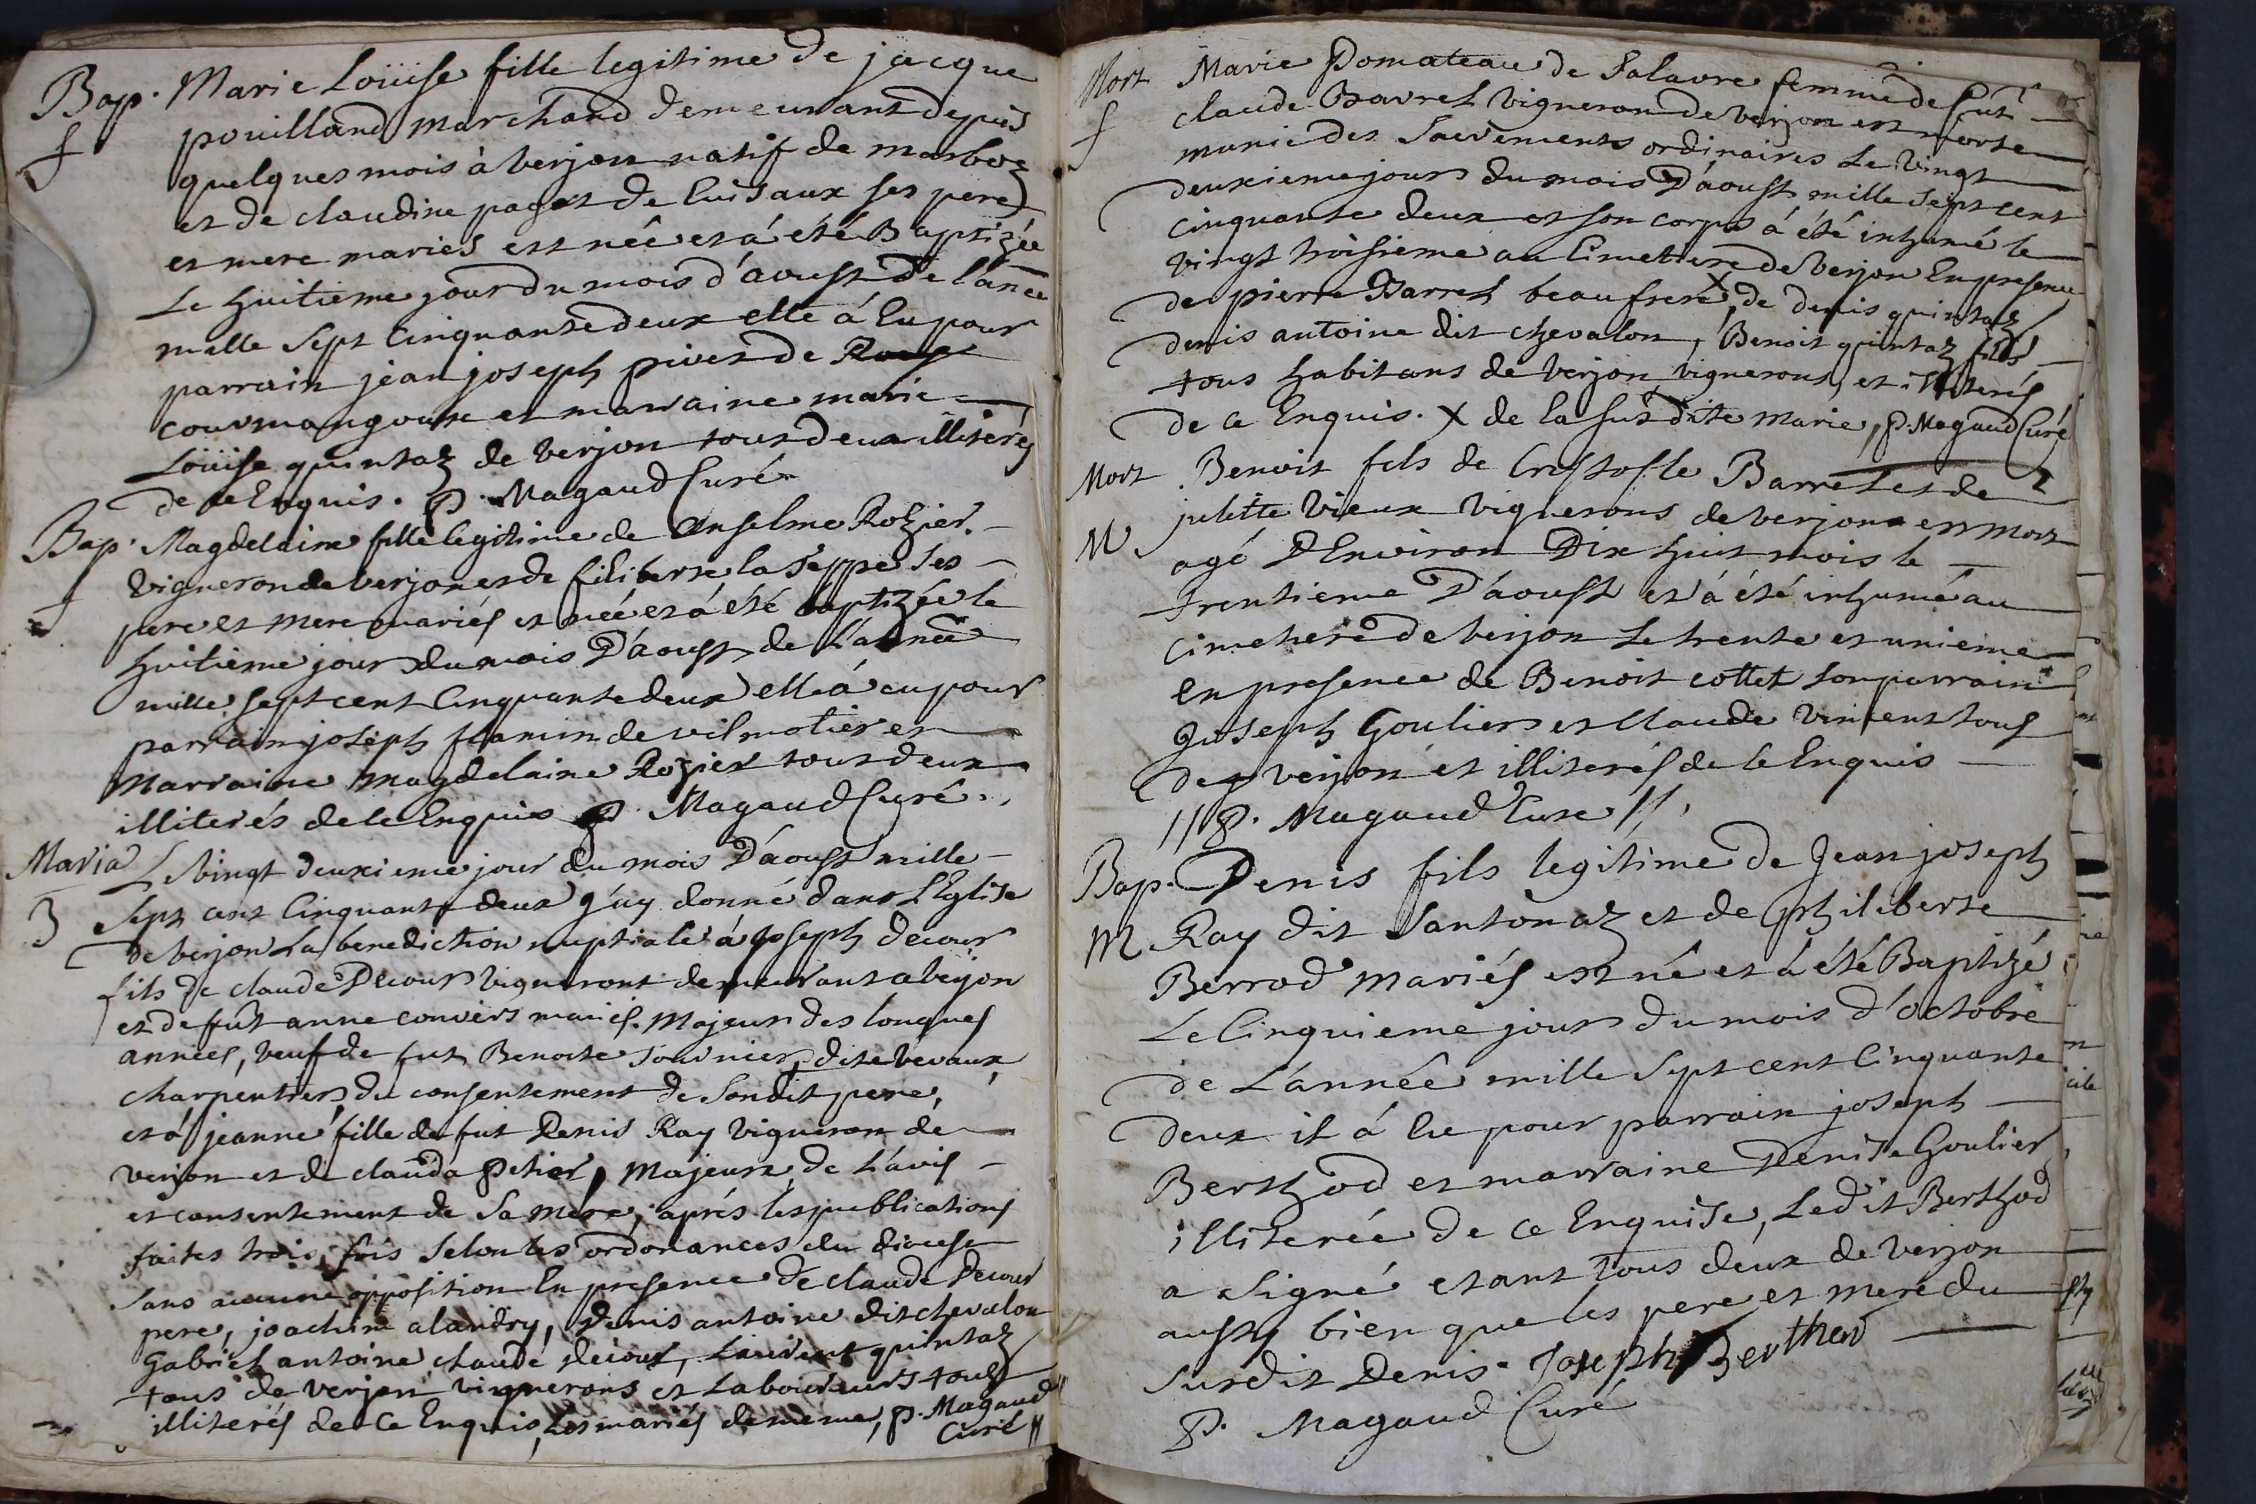 Bap. Marie Loüise fille legitime de jacque
f pouilland marchand demeurant depuis
quelques mois à verjon natif de marboz
et de claudine paget de Cuisaux ses pere
et mere mariés est née et á été Baptizée
Le huitieme jour du mois d'aoust de l'anée
mille sept Cinquante deux elle á Eu pour
parrain jean joseph pivet de
courmangoux et marraine marie
Loüise quintaz de verjon tous deux illiterés
de ce Enquis. P. Magaud Curé
Bap. Magdelaine fille legitime de Anselme Rozier
f vigneron de verjon et de filiberte la Seppe ses
pere et mere mariés est née et á été baptizée le
huitieme jour du mois D'áoust de L'année
mille sept cent Cinquante deux elle á eu pour
parrain joseph flamin de vilmotier et
Marraine Magdelaine Rozier tous deux
illiterés de ce Enquis P. Magaud Curé.
Maria Le vingt deuxieme jour du mois D'áoust mille
3 Sept cent Cinquante deux j'áy donné dans L'Eglise
de verjon La benediction nuptiale á joseph decour
fils de claude Decour vigneront demeurant a verjon
et de fut anne convers mariés. Majeur des longues
années, veuf de fut Benoite Journier, dite vevaux,
charpentier, du consentement de Sondit pere,
et á jeanne fille de fut Denis Ray vigneron de
verjon et de clauda petier, Majeure, de L'avis
et consentement de Sa mére, aprés les publications
faites trois fois Selon les ordonances du diocese
Sans aucune opposition En presence de claude Decour
pere, joachim alandry, Denis antoine dit chevalon
Gabriel antoine claude decour, Laurent quintaz
tous de verjon vignerons et Laboureurs tous
illiterés de Ce Enquis, Les mariés de meme, P. Magaud
Curé
Mort Marie Pomateau de Salavre femme de fut
f claude Barret vigneron de verjon est morte
munie des Sacrements ordinaires Le vingt
deuxieme jour du mois D'áoust mille Sept cent
cinquante deux et son corps á été inhumé le
vingt troisieme au Cimetiere de verjon En presence
de pierre Barret beau frere X, de denis quintaz
denis antoine dit chevalon, Benoit quintaz fils,
tous habitans de verjon, vignerons, et illiterés
de ce Enquis. X de la sus dite marie, P. Magaud Curé
Mort Benoit fils de Cristofle Barret et de
M juliette Vieux vignerons de verjon est mort
agé D'Environ Dix huit mois le
trentieme D'áoust et á été inhumé au
cimetiere de verjon Le trente et unieme
en presence de Benoit cottet son parrain
Joseph Goulier et Claude vincent tous
de verjon et illiterés de Ce Enquis
// P. Magaud Cure //.
Bap. Denis fils legitime de Jean joseph
M Ray dit Santonaz et de philiberte
Berrod mariés est né et á été Baptizé
Le Cinquieme jour du mois d'octobre
de L'année mille Sept cent Cinquante
deux il á Eu pour parrain joseph
Berthod et marraine Denise Goulier
illiterée de Ce Enquise, Ledit Berthod
a Signé etant tous deux de verjon
aussy bien que les pere et mere du
Susdit Denis. Joseph Berthod
P. Magaud Curé